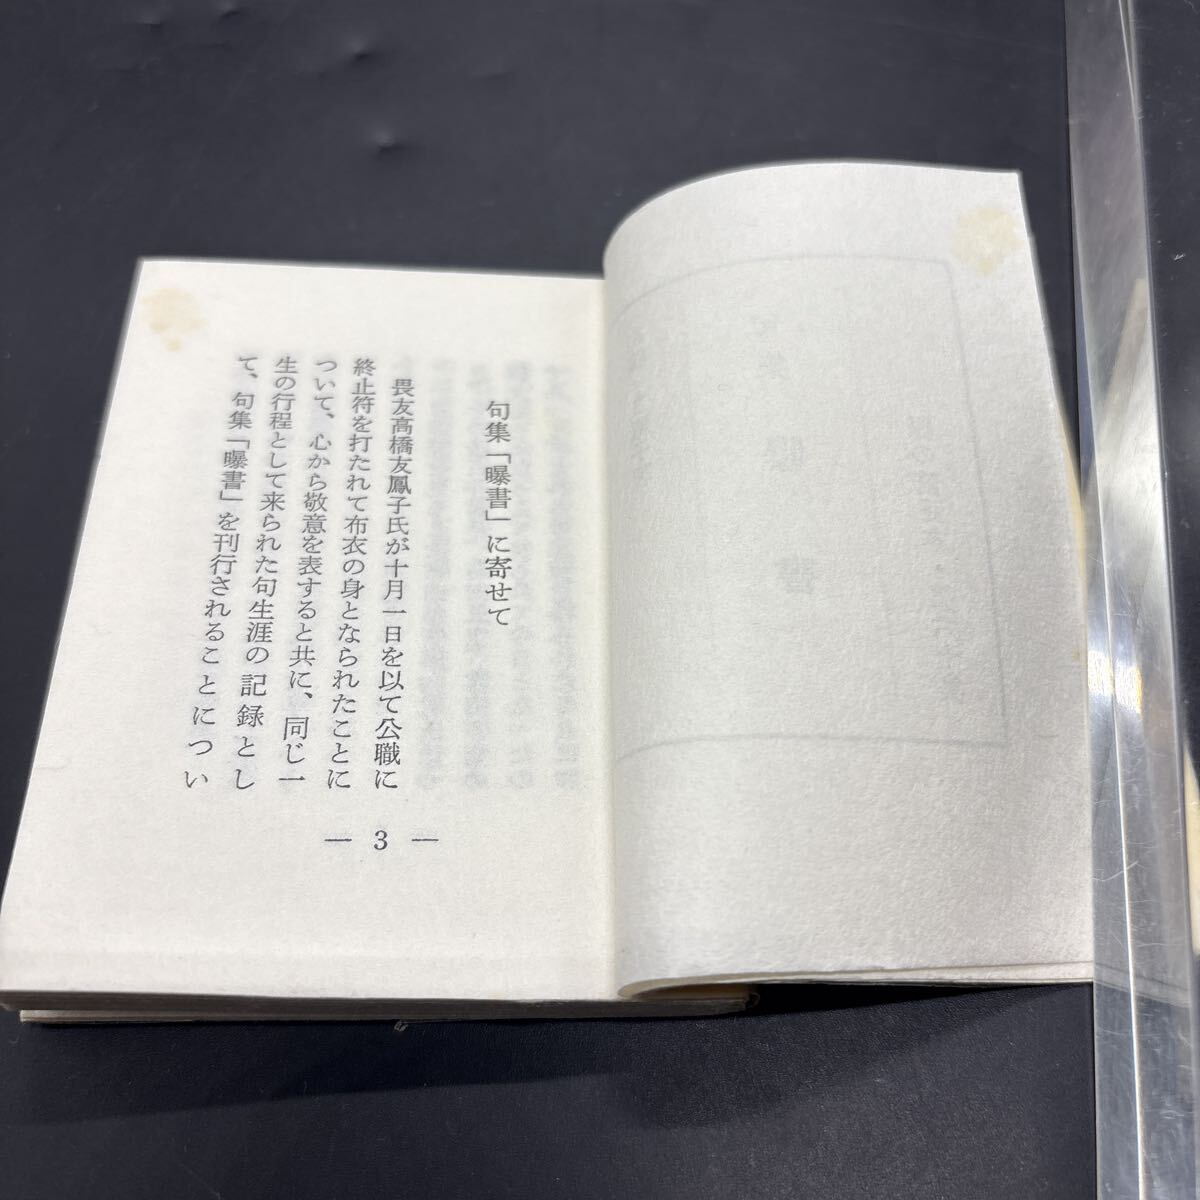 句集「曝書」に寄せて
畏友高橋友鳳子氏が十月一日を以て公職に
終止符を打たれて布衣の身となられたことに
ついて、心から敬意を表すると共に、同じ一
生の行程として来られた句生涯の記録とし
て、句集「曝書」を刊行されることについ
— 3 —